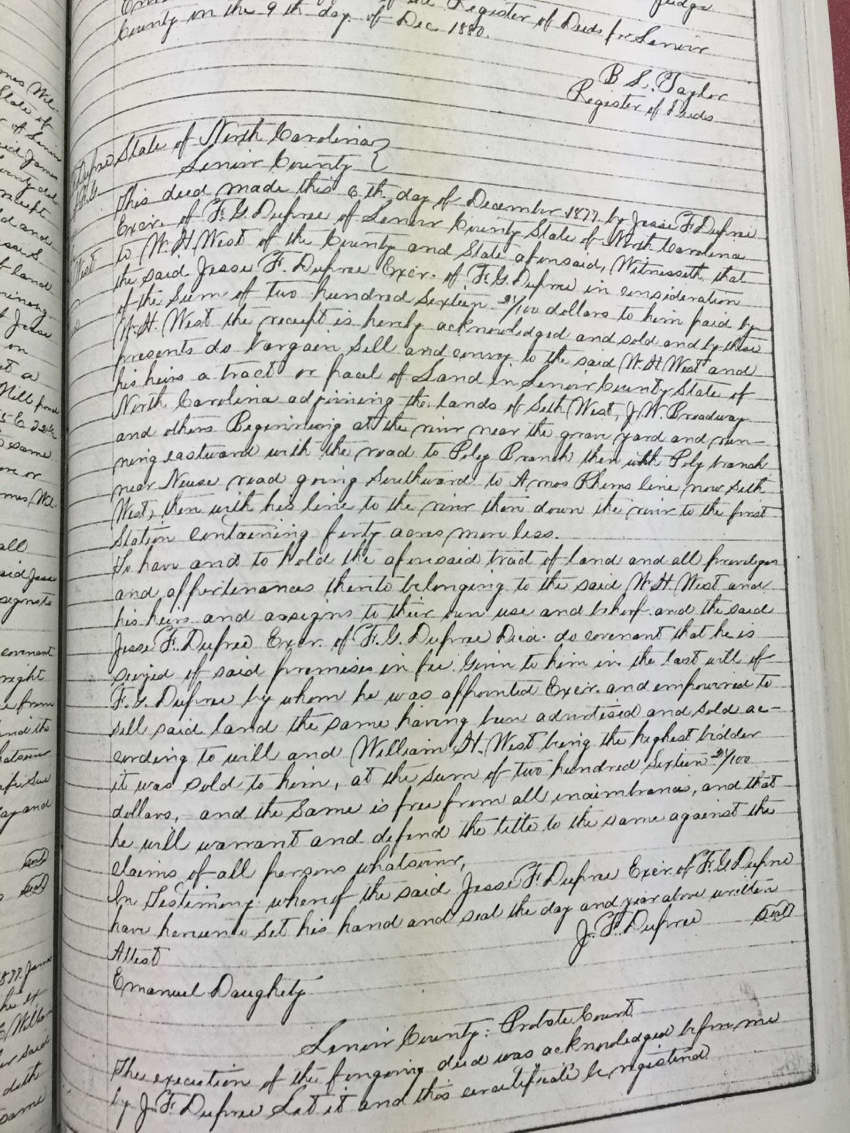 County on the 9th day of Dec 1880.
B. S. Taylor
Register of Deeds
State of North Carolina
Lenoir County
This deed made this 6th day of December 1877 by Jesse F Dupree
Excr. of F. G. Dupree of Lenoir County State of North Carolina
to W. H West of the County and State aforesaid, Witnesseth that
the said Jesse F. Dupree Excr. of F. G. Dupree in consideration
of the Sum of two hundred Sixteen /100 dollars to him paid by
W. H. West the receipt is hereby acknowledged and sold and by these
presents do bargain Sell and convey to the said W. H West and
his heirs a tract or pacel of Land in Lenoir County State of
North Carolina adjoining the lands of Seth West, J. W. Broadway
and others Beginning at the river near the grave yard and run-
ning eastward with the road to Poley Branch then with Poly branch
near Neuse road going Southward to Amos Rhems line now Seth
West, then with his line to the river then down the river to the first
Station containing forty acres more less.
To have and to hold the aforesaid tract of land and all priveliges
and appertenances thereto belonging to the said W. H West and
his heirs and assigns to their own use and behoof and the said
Jesse F. Dupree Excr. of F. G. Dupree Decd. do covenant that he is
seized of said premises in fee Given to him in the last will of
F. G. Dupree by whom he was appointed Excr. and empowered to
sell said land the same having been advertised and sold ac-
cording to will and William H. West being the highest bidder
it was sold to him, at the sum of two hundred Sixteen /100
dollars, and the Same is free from all incimbrance, and that
he will warrant and defend the title to the same against the
claims of all persons whatsoever,
In Testimony whereof the said Jesse F Dupree Excr of F. G Dupree
have hereunto set his hand and seal the day and year above written
J. F. Dupree Seal
Attest
Emanuel Daughety
Lenoir County: Probate Court
The execution of the foregoing deed was acknowledged before me
by J. F Dupree Let it and this certificate be registered